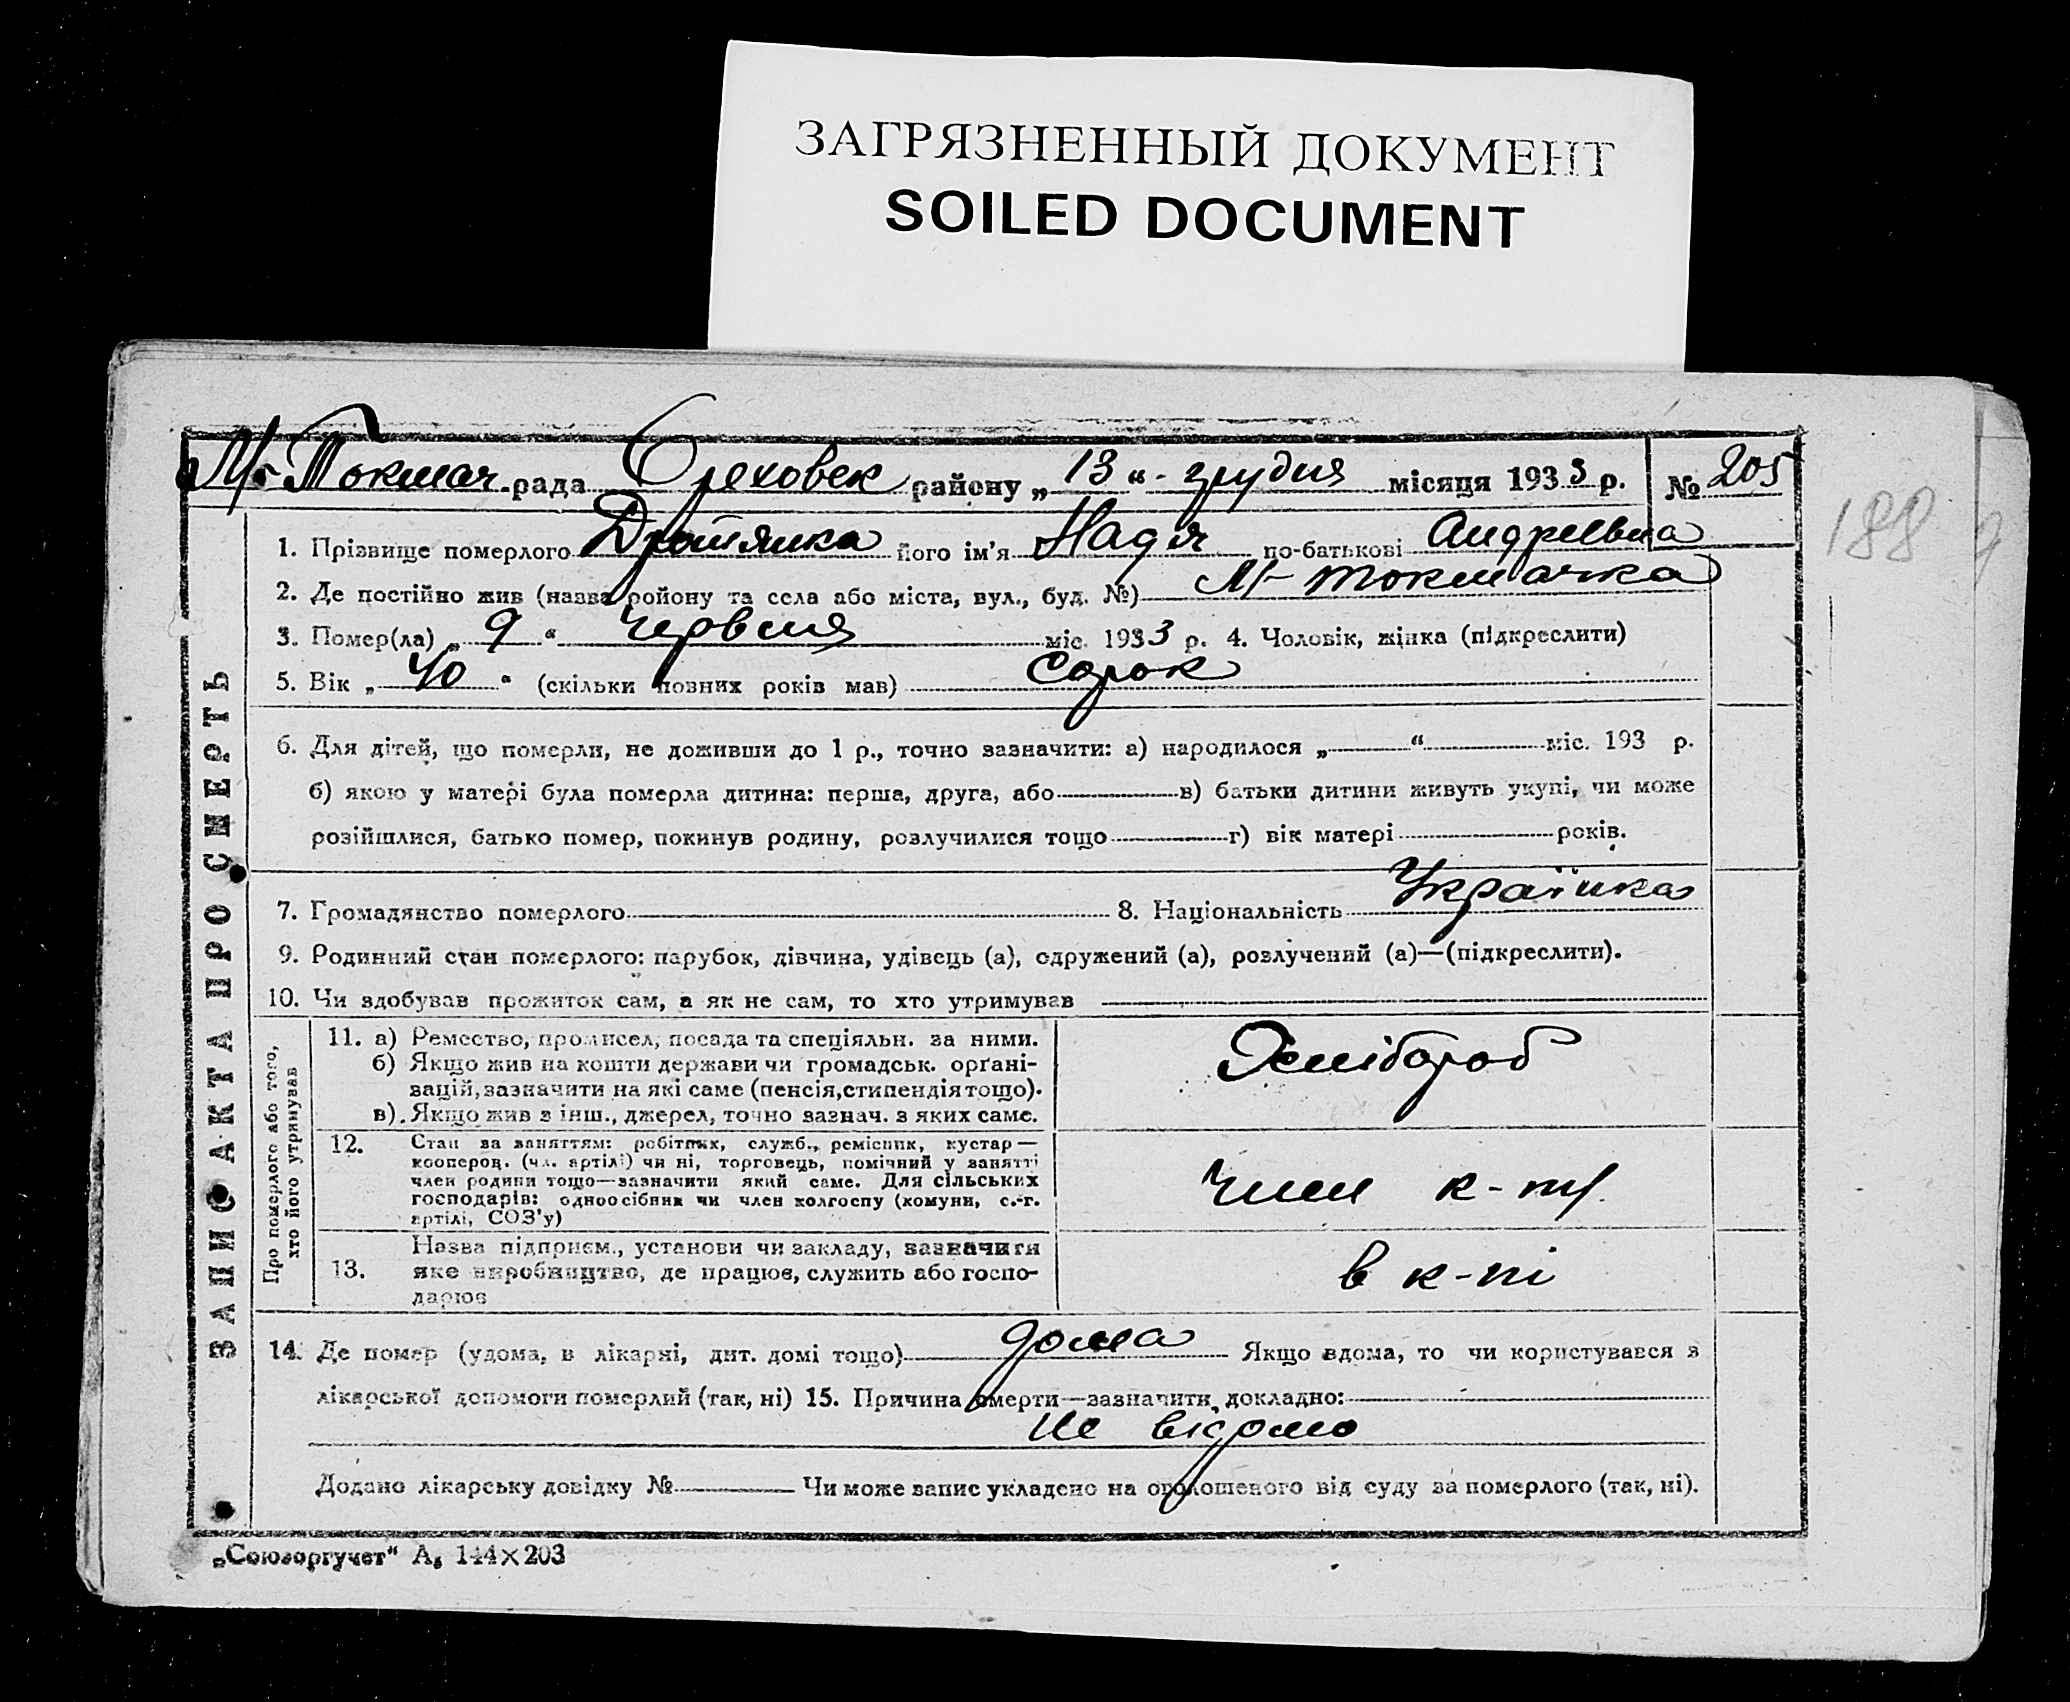 ЗАГРЯЗНЕННЫЙ ДОКУМЕНТ
SOILED DOCUMENT
М/-Токмач. рада Ореховск району „13“ грудня місяця 1933 р. № 205
188
1. Прізвище померлого Дротянка його ім'я Надія по-батькові Андреевна
2. Де постійно жив (назва ройону та села або міста, вул., буд. №) М/-Токмачка
3. Помер(ла) „9“ червня міс. 1933 р. 4. Чоловік, жінка (підкреслити)
5. Вік „40“ (скільки повних років мав) Сорок
6. Для дітей, що померли, не доживши до 1 р., точно зазначити: а) народилося „ “ міс. 193 р.
б) якою у матері була померла дитина: перша, друга, або в) батьки дитини живуть укупі, чи може
розійшлися, батько помер, покинув родину, розлучилися тощо г) вік матері років.
7. Громадянство померлого 8. Національність Українка
9. Родинний стан померлого: парубок, дівчина, удівець (а), одружений (а), розлучений (а)—(підкреслити).
10. Чи здобував прожиток сам, а як не сам, то хто утримував
ЗАПИС АКТА ПРО СМЕРТЬ
Про померлого або того, хто його утримував
11. а) Ремество, промисел, посада та спеціяльн. за ними.
б) Якщо жив на кошти держави чи громадськ. орґані-
зацій, зазначити на які саме (пенсія, стипендія тощо).
в). Якщо жив з інш., джерел, точно зазнач. з яких саме.
Хлібороб
12. Стан за заняттям: робітник, служб., ремісник, кустар—
кооперов. (чл. артілі) чи ні, торговець, помічний у занятті
член родини тощо—зазначити який саме. Для сільських
господарів: одноосібник чи член колгоспу (комуни, с.-г.
артілі, СОЗ'у)
Член к-пу
13. Назва підприєм., установи чи закладу, зазначити
яке виробництво, де працює, служить або госпо-
дарює
в к-пі
14. Де помер (удома, в лікарні, дит. домі тощо) дома Якщо вдома, то чи користувався з
лікарської допомоги померлий (так, ні) 15. Причина смерти—зазначити докладно:
Не відомо
Додано лікарську довідку № Чи може запис укладено на оголошеного від суду за померлого (так, ні).
„Союзоргучет“ А₅ 144×203